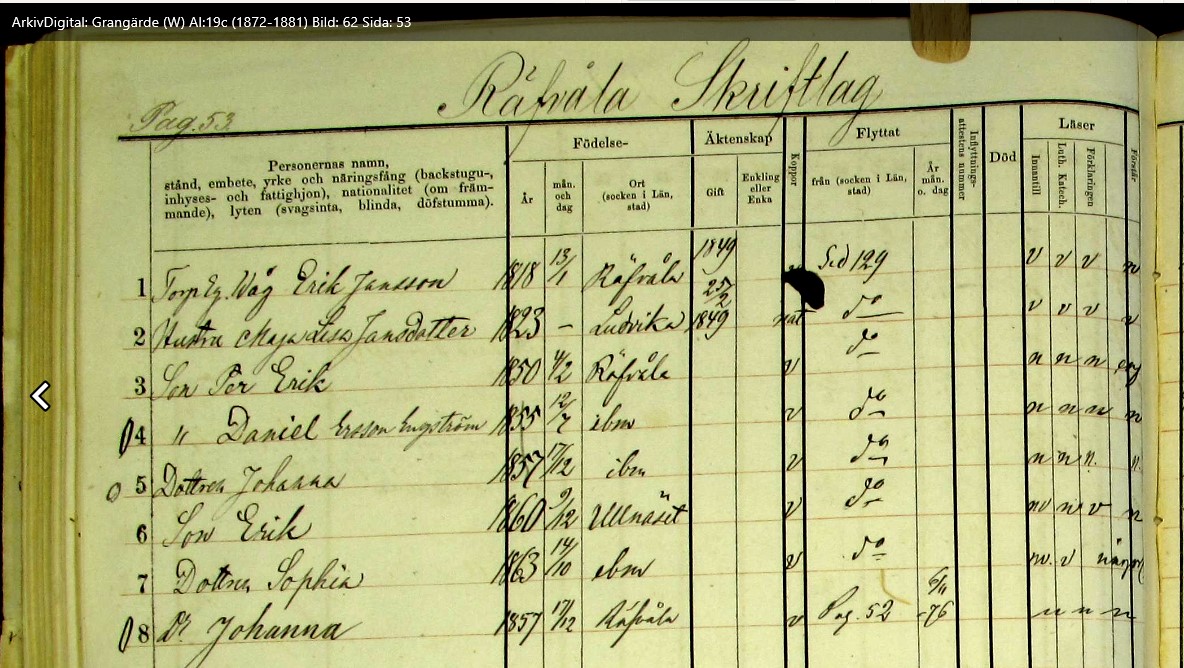 ArkivDigital: Grangärde (W) AI:19c (1872-1881) Bild: 62 Sida: 53
Räfvåla Skriftlag
Pag. 53.
Personernas namn,
stånd, embete, yrke och näringsfång (backstugu-,
inhyses- och fattighjon), nationalitet (om främ-
mande), lyten (svagsinta, blinda, döfstumma).
Födelse-
År
mån. och dag
Ort
(socken i Län, stad)
Äktenskap
Gift
Enkling eller Enka
Koppor
Flyttat
från (socken i Län, stad)
År mån. o. dag
Inflyttnings-attestens nummer
Död
Läser
Innantill
Luth. Katech.
Förklaringen
Förstår
1 Torp Eg. Våg Erik Jansson 1818 13/1 Räfvåla 1849 Sid 129 v v v
2 Hustru Maja Lisa Jansdotter 1823 – Ludvika 25/2 1849 nat do v v v v
3 Son Per Erik 1850 4/2 Räfvåla v do n n n
4 " Daniel Ersson Engström 1855 12/7 ibm v do n n n n
5 Dottren Johanna 1857 17/12 ibm v do n n n. n.
6 Son Erik 1860 9/12 Ullnäset v do n v n
7 Dottren Sophia 1863 14/10 ibm v do v
8 Dr Johanna 1857 17/12 Räfvåla v Pag. 52 6/11 -76 n n n